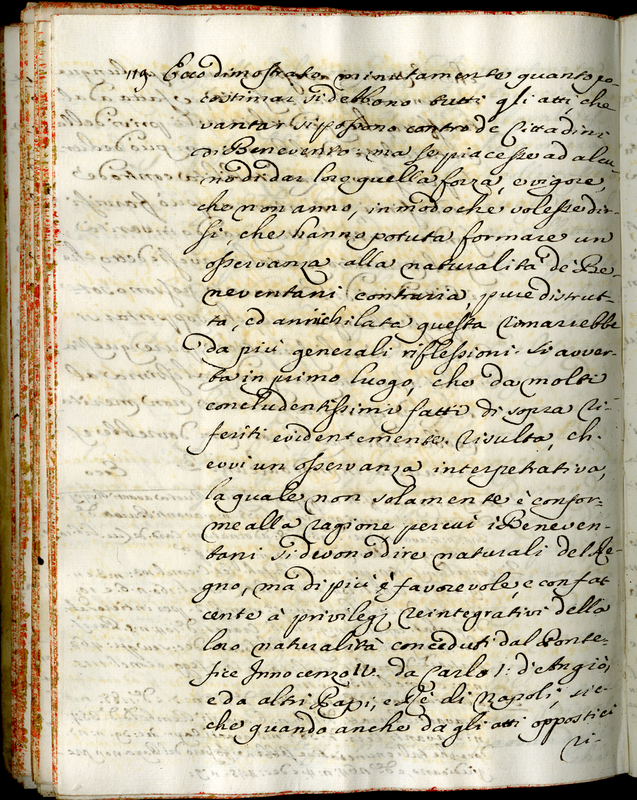 119. Ecco dimostrato minutamente quanto po-
co stimar si debbono tutti gli atti, che
vantar si possano contro de Cittadini
di Benevento: ma se piacesse ad alcu-
no di dar loro quella forza, e vigore,
che non anno, in modo che volesse dir-
si, che hanno potuta formare un
osservanza alla naturalità de' Be-
neventani contraria, pure distrut-
ta, ed annichilata questa rimarrebbe
da più generali riflessioni. Si avver-
ta in primo luogo, che da molti
concludentissimi fatti di sopra ri-
feriti evidentemente risulta, ch'
evvi un osservanza interpetrativa,
la quale non solamente è confor-
me alla ragione per cui i Beneven-
tani si devono dire naturali del Re-
gno, ma di più è favorevole, e confa-
cente a' privilegj reintegrativi della
loro naturalità conceduti dal Ponte-
fice Innocenzo IV. da Carlo I: d'Angiò,
e da altri Papi, e Rè di Napoli; sic-
che quando anche da gli atti oppostici
ri-